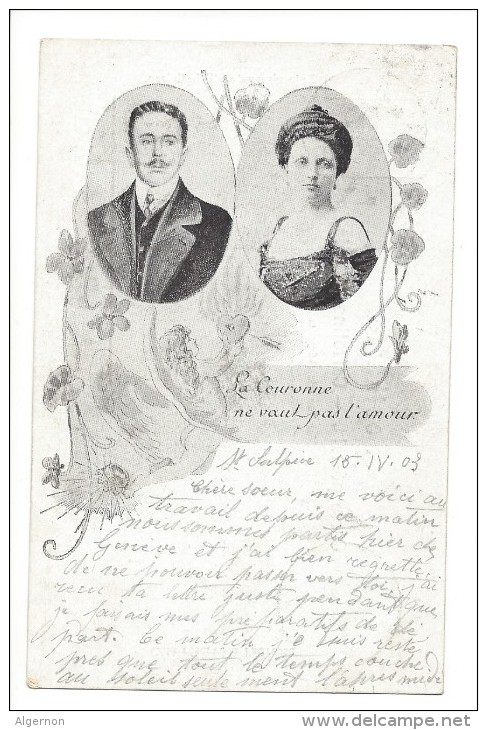 La Couronne
ne vaut pas l'amour
St Sulpice 15. IV. 03
Chère soeur, me voici au
travail depuis ce matin
nous sommes partis hier de
Genève et j'ai bien regretté
de ne pouvoir passer vers toi, j'ai
reçu ta lettre juste pendant que
je faisais mes préparatifs de dé
part. Ce matin je suis resté
presque tout le temps couché
au soleil seulement l'après midi
Algernon
www.delcampe.net